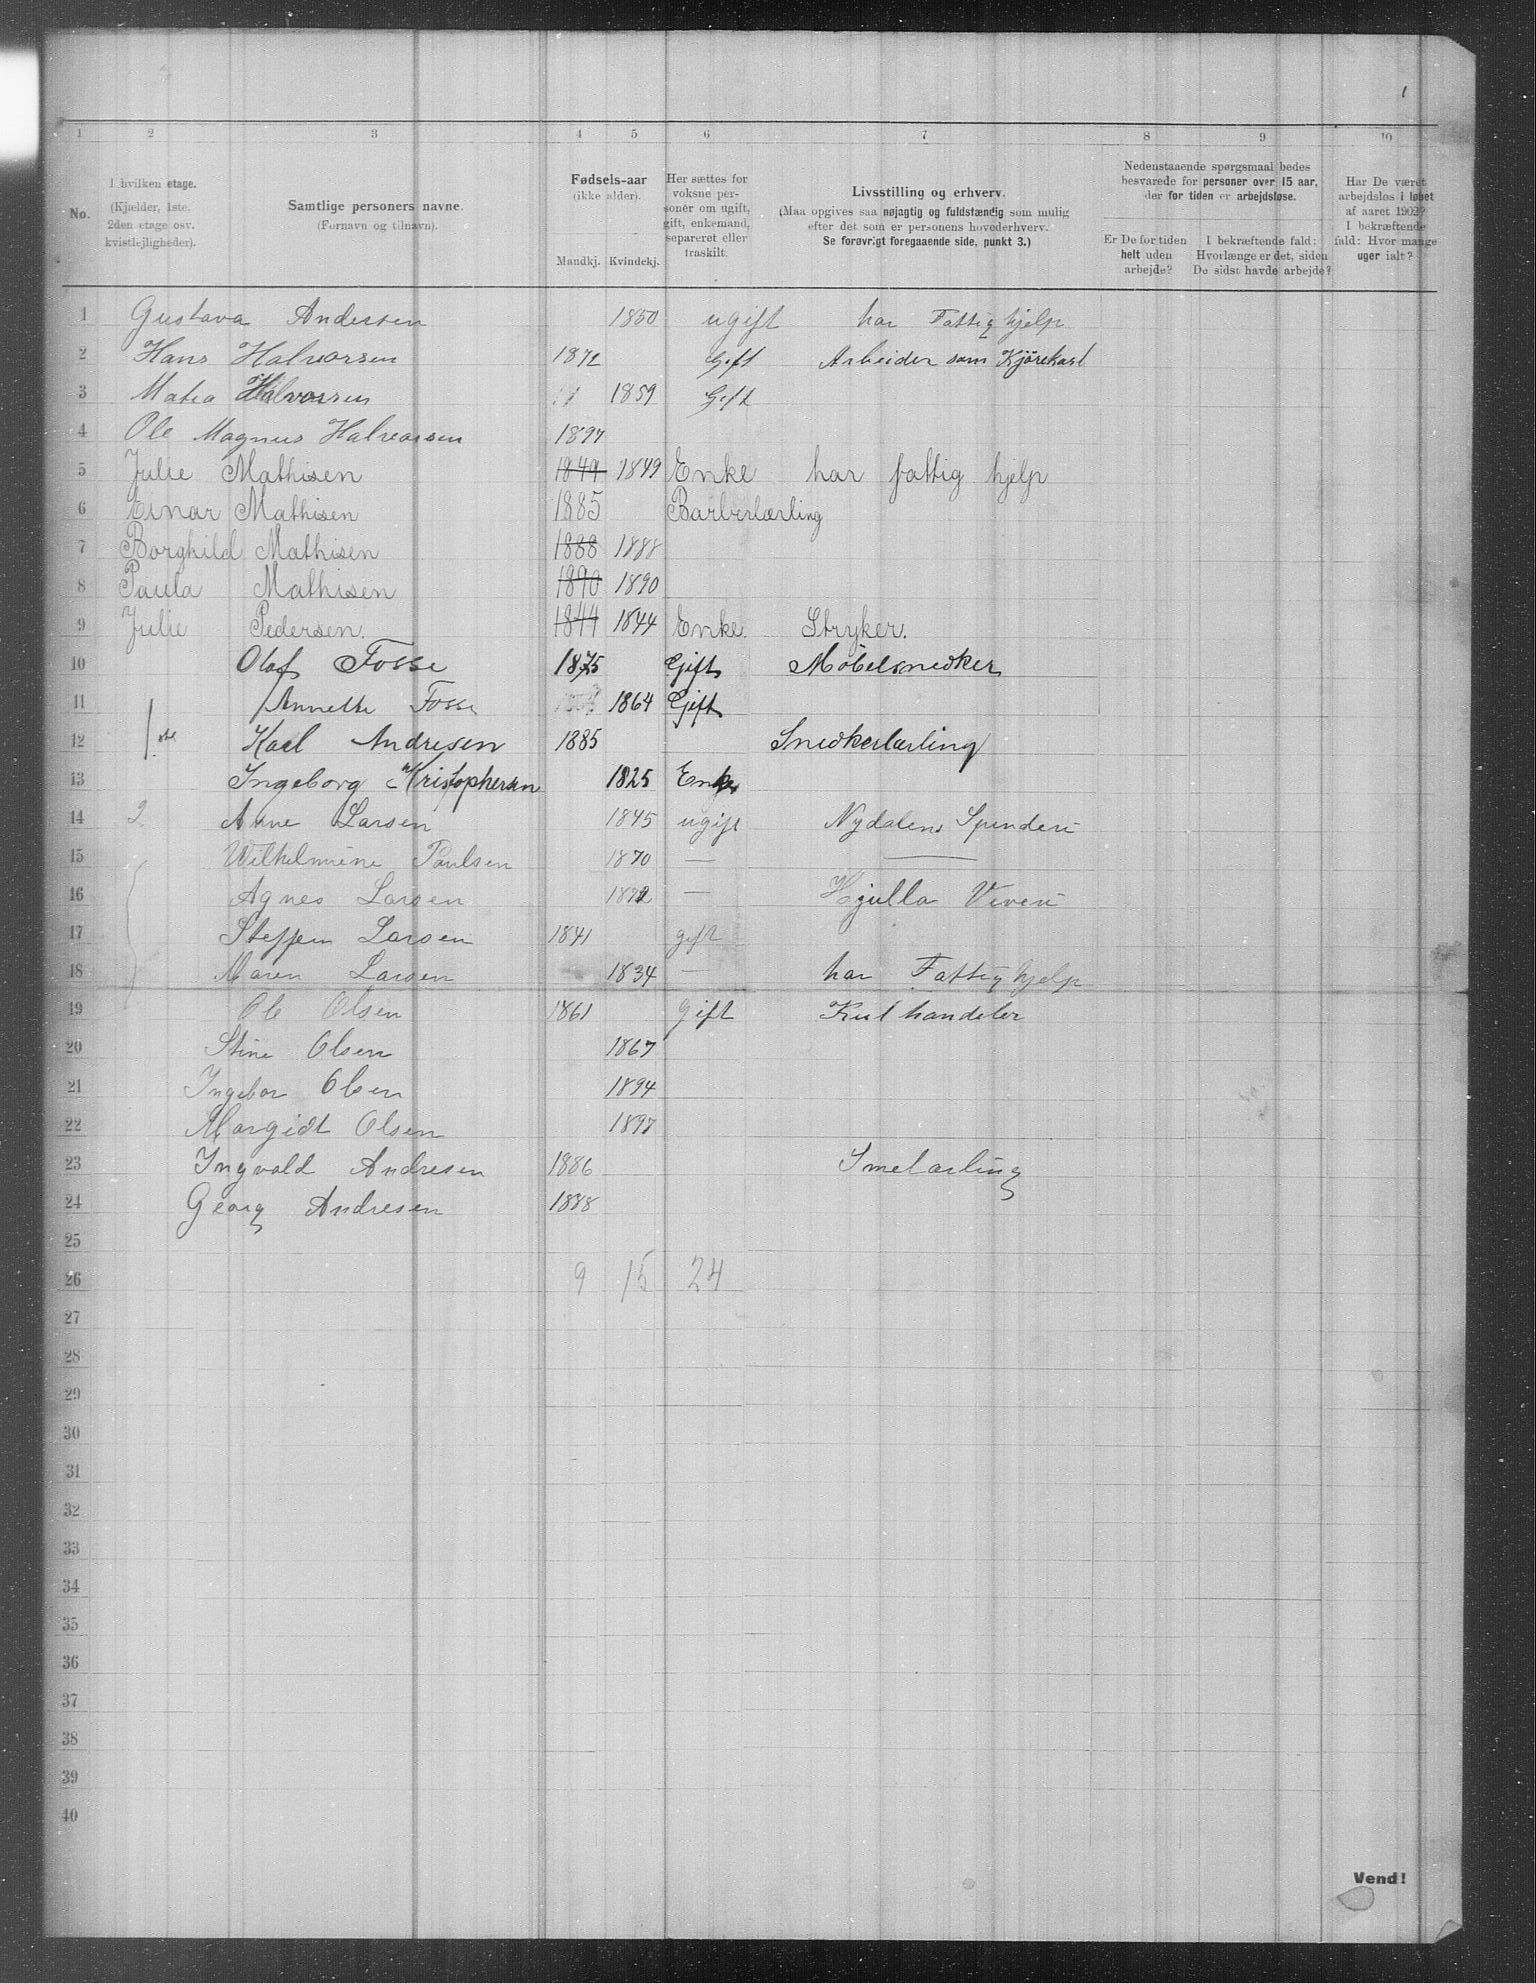 1
1 2 3 4 5 6 7 8 9 10
No.
I hvilken etage.
(Kjælder, 1ste.
2den etage osv.
kvistlejligheder).
Samtlige personers navne.
(Fornavn og tilnavn).
Fødsels-aar
(ikke alder).
Mandkj. Kvindekj.
Her sættes for
voksne per-
soner om ugift,
gift, enkemand,
separeret eller
fraskilt.
Livsstilling og erhverv.
(Maa opgives saa nøjagtig og fuldstændig som mulig
efter det som er personens hovederhverv.
Se forøvrigt foregaaende side, punkt 3.)
Nedenstaaende spørgsmaal bedes
besvarede for personer over 15 aar,
der for tiden er arbejdsløse.
Er De for tiden
helt uden
arbejde?
I bekræftende fald:
Hvorlænge er det, siden
De sidst havde arbejde?
Har De været
arbejdsløs i løbet
af aaret 1902?
I bekræftende
fald: Hvor mange
uger ialt?
1 Gustava Andersen 1850 ugift har Fattighjelp
2 Hans Halvorsen 1872 Gift Arbeider som Kjørekarl
3 Matea Halvorsen 1859 Gift
4 Ole Magnus Halvorsen 1897
5 Julie Mathisen 1849 1849 Enke har fattig hjelp
6 Einar Mathisen 1885 Barberlærling
7 Borghild Mathisen 1888 1888
8 Paula Mathisen 1890 1890
9 Julie Pedersen. 1844 1844 Enke. Stryker.
10 Olaf Fosse 1875 Gift Møbelsnedker
11 Annette Fosse 1864 Gift
12 1ste Karl Andresen 1885 Snedkerlærling
13 Ingeborg Kristophersen 1825 Enke
14 2. Anne Larsen 1845 ugift Nydalens Spinderi
15 Wilhelmine Paulsen 1870 — —
16 Agnes Larsen — Hjulla Veveri
17 Steffen Larsen 1841 gift
18 Maren Larsen 1834 — har Fattighjelp
19 Ole Olsen 1861 gift Kulhandeler
20 Stine Olsen 1867
21 Ingebor Olsen 1894
22 Margidt Olsen 1897
23 Ingvald Andresen 1886 Smelarling
24 Georg Andresen 1888
25
26 9 15 24
27
28
29
30
31
32
33
34
35
36
37
38
39
40
Vend!